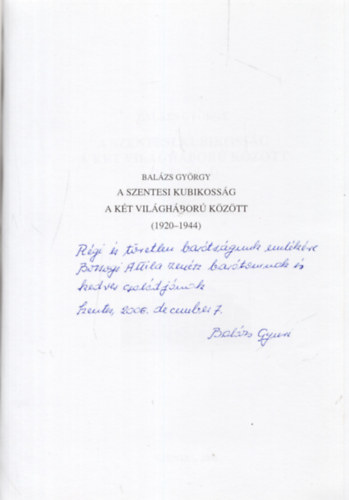 BALÁZS GYÖRGY
A SZENTESI KUBIKOSSÁG
A KÉT VILÁGHÁBORÚ KÖZÖTT
(1920–1944)
Régi és töretlen barátságunk emlékére
Attila zenész barátomnak és
kedves családjának
Szentes, 2006. december 7.
Balázs Gyuri